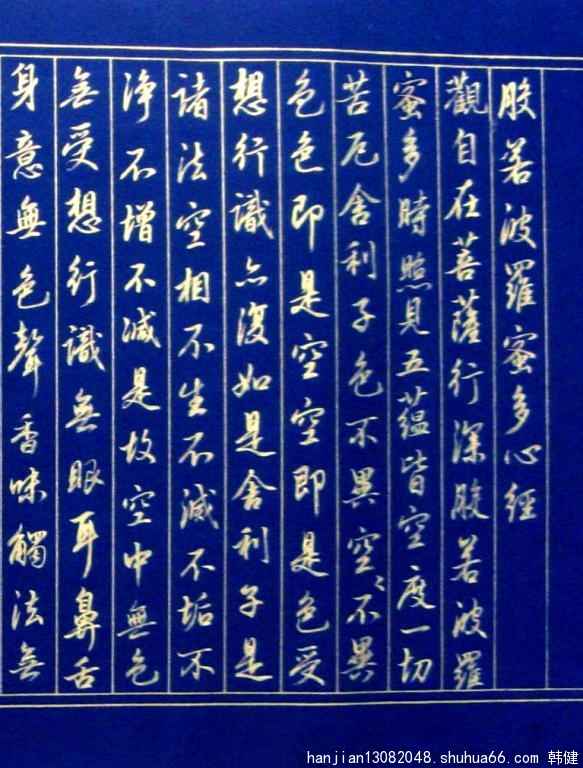 般若波羅蜜多心經
觀自在菩薩行深般若波羅
蜜多時照見五蘊皆空度一切
苦厄舍利子色不異空〻不異
色色即是空空即是色受
想行識亦復如是舍利子是
諸法空相不生不滅不垢不
淨不增不減是故空中無色
無受想行識無眼耳鼻舌
身意無色聲香味觸法無
hanjian13082048.shuhua66.com 韩健